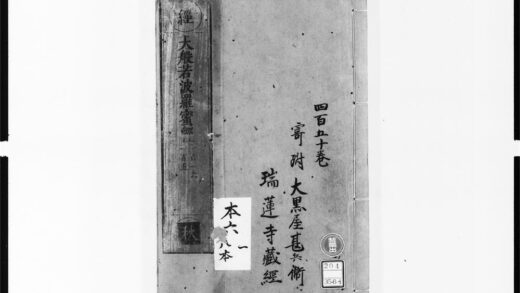 四百五十巻
寄附 大黒屋甚兵衛
瑞蓮寺藏經
經
大般若波羅蜜
秋
本六八本
一
204
3564